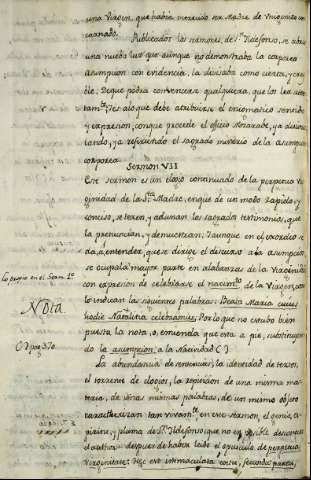 una Virgen, que habia merecido ser Madre de Unigenito en
carnado.
Publicados los sermones, de Sn. Ildefonso, se abrio
una nueba luz que aunque no demonstraba la corporea
asumpcion con evidencia, la devisaba como cierta, y cre
ible. De que podra convencerse qualquiera, que los lea aten
tamte. Y es a lo que debe atribuirse el enigmatico sentido
y expresion, con que procede el oficio Mozarabe, ya
tando, ya refiriendo el sagrado misterio de la asumpcion
corporea.
Sermon VII
Este sermon es un elogio continuado de la perpetua Vir
ginidad de la Sta. Madre, en que de un modo rapido y
conciso, se texen, y adunan los sagrados testimonios, que
la prenuncian, y demuestran. Y aunque en el exordio se
da a entender, que se dirige el discurso a la asumpcion,
se ocupa la mayor parte en alabanzas de la Virginidad
con expresion de celebrarse el nacimto. de la Virgen, como
lo indican las siguientes palabras: Beata Maria cuius
hodie Natalitia celebramus. Por lo que no estubo bien
puesta la nota, o enmienda que esta a pie, substituyen
do la asumpcion a la Natividad C.)
La abundancia de sentencias, la identidad de textos,
el torrente de elogios, la repeticion de una misma ma
teria, de unas mismas palabras, de un mismo objeto
caracterizan tan vivamte. en este sermon, el genio,
y pluma de Sn. Ildefonso que no es posible desconocer
el author despues de haber leido el opusculo de perpetua
Virginitate: Dize est immaculata coitu, fecunda partu,
Lo propio en el Serm. 1º
Nota
C) pag. 370.